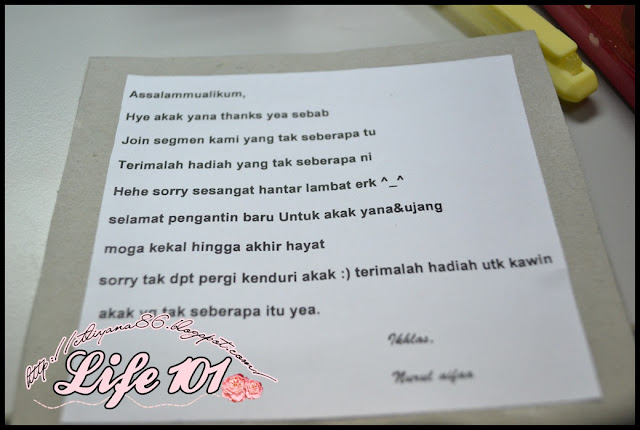 Assalammualikum,
Hye akak yana thanks yea sebab
Join segmen kami yang tak seberapa tu
Terimalah hadiah yang tak seberapa ni
Hehe sorry sesangat hantar lambat erk ^_^
selamat pengantin baru Untuk akak yana&ujang
moga kekal hingga akhir hayat
sorry tak dpt pergi kenduri akak :) terimalah hadiah utk kawin
akak yg tak seberapa itu yea.
Ikhlas,
Nurul aifaa
Life 101